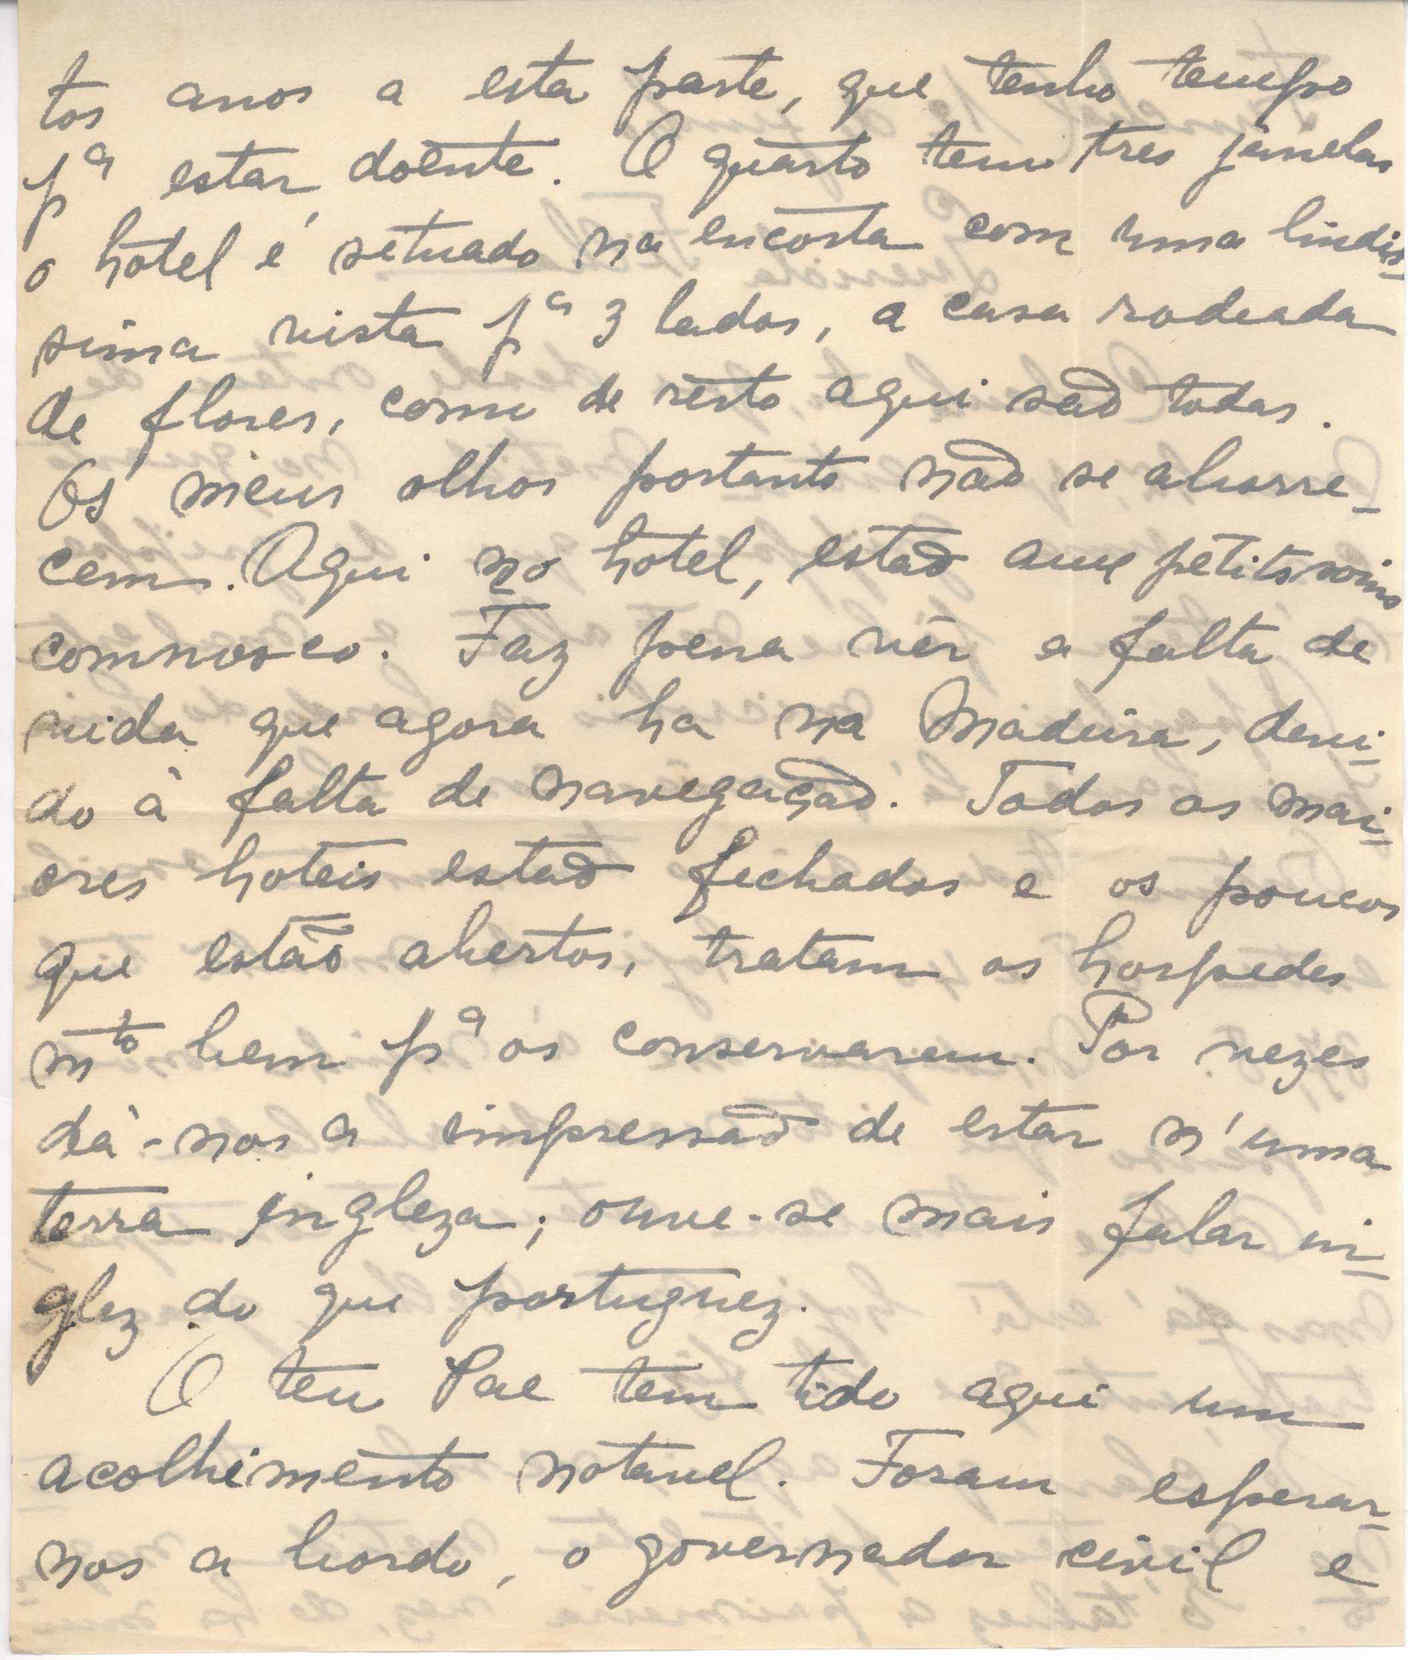 tos anos a esta parte, que tenho tempo
pª estar doente. O quarto tem tres janelas
o hotel é setuado na encosta com uma lindis-
sima vista pª 3 lados, a casa rodeada
de flores, como de resto aqui saõ todas.
Os meus olhos portanto naõ se aborre-
cem. Aqui no hotel, estaõ aux petits soins
comnosco. Faz pena vêr a falta de
vida que agora ha na Madeira, devi-
do à falta de navegaçaõ. Todos os mai-
ores hoteis estaõ fechados e os poucos
que estão abertos, tratam os hospedes
mto bem pª os conservarem. Por vezes
dá-nos a impressaõ de estar n'uma
terra ingleza; ouve-se mais falar in-
glez do que portuguez.
O teu Pae tem tido aqui um
acolhimento notavel. Foram esperar-
nos a bordo, o governador civil e